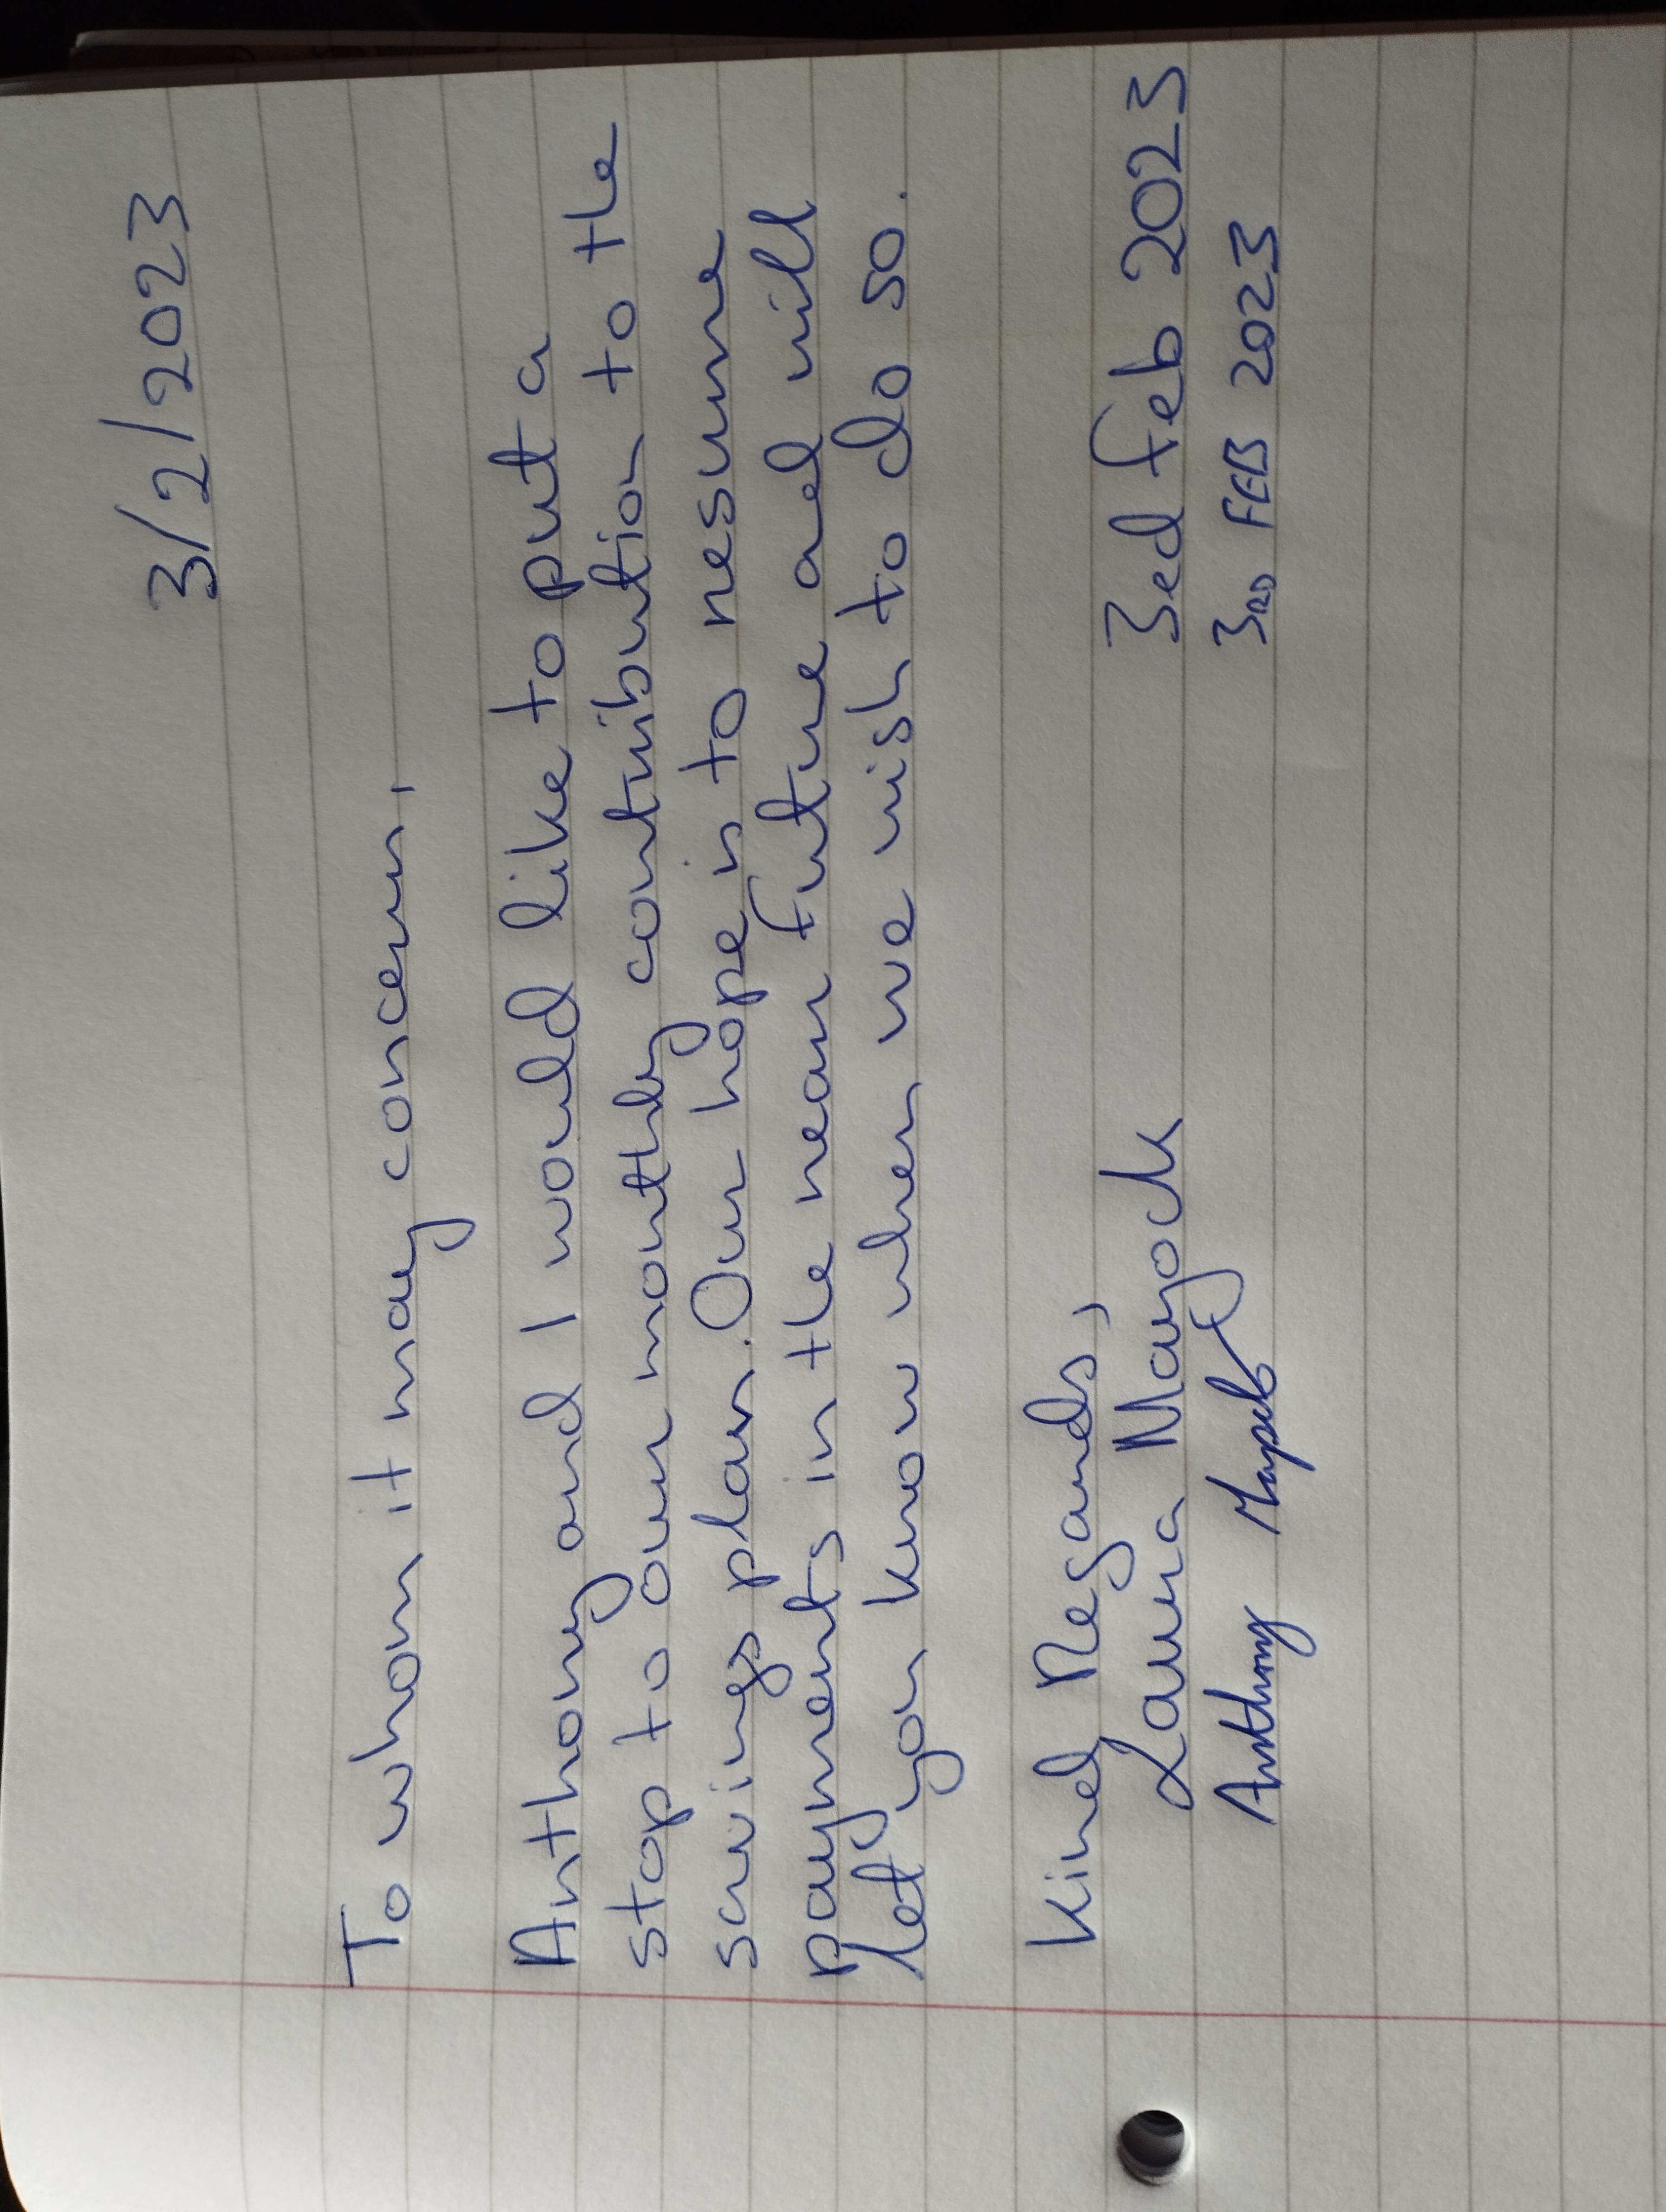 3/2/2023
To whom it may concern,
Anthony and I would like to put a
stop to our monthly contribution to the
savings plan. Our hope is to resume
payments in the near future and will
let you know when we wish to do so.
Kind Regards,
Laura Mayock 3ed Feb 2023
Anthony 3RD FEB 2023